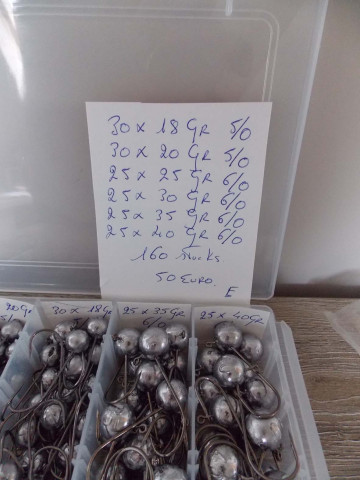 30 x 18 GR 5/0
30 x 20 GR 5/0
25 x 25 GR 6/0
25 x 30 GR 6/0
25 x 35 GR 6/0
25 x 40 GR 6/0
160 Stucks
50 EURO.
E
20 GR
5/0
30 x 18 GR
5
25 x 35 GR
6/0
25 x 40 GR